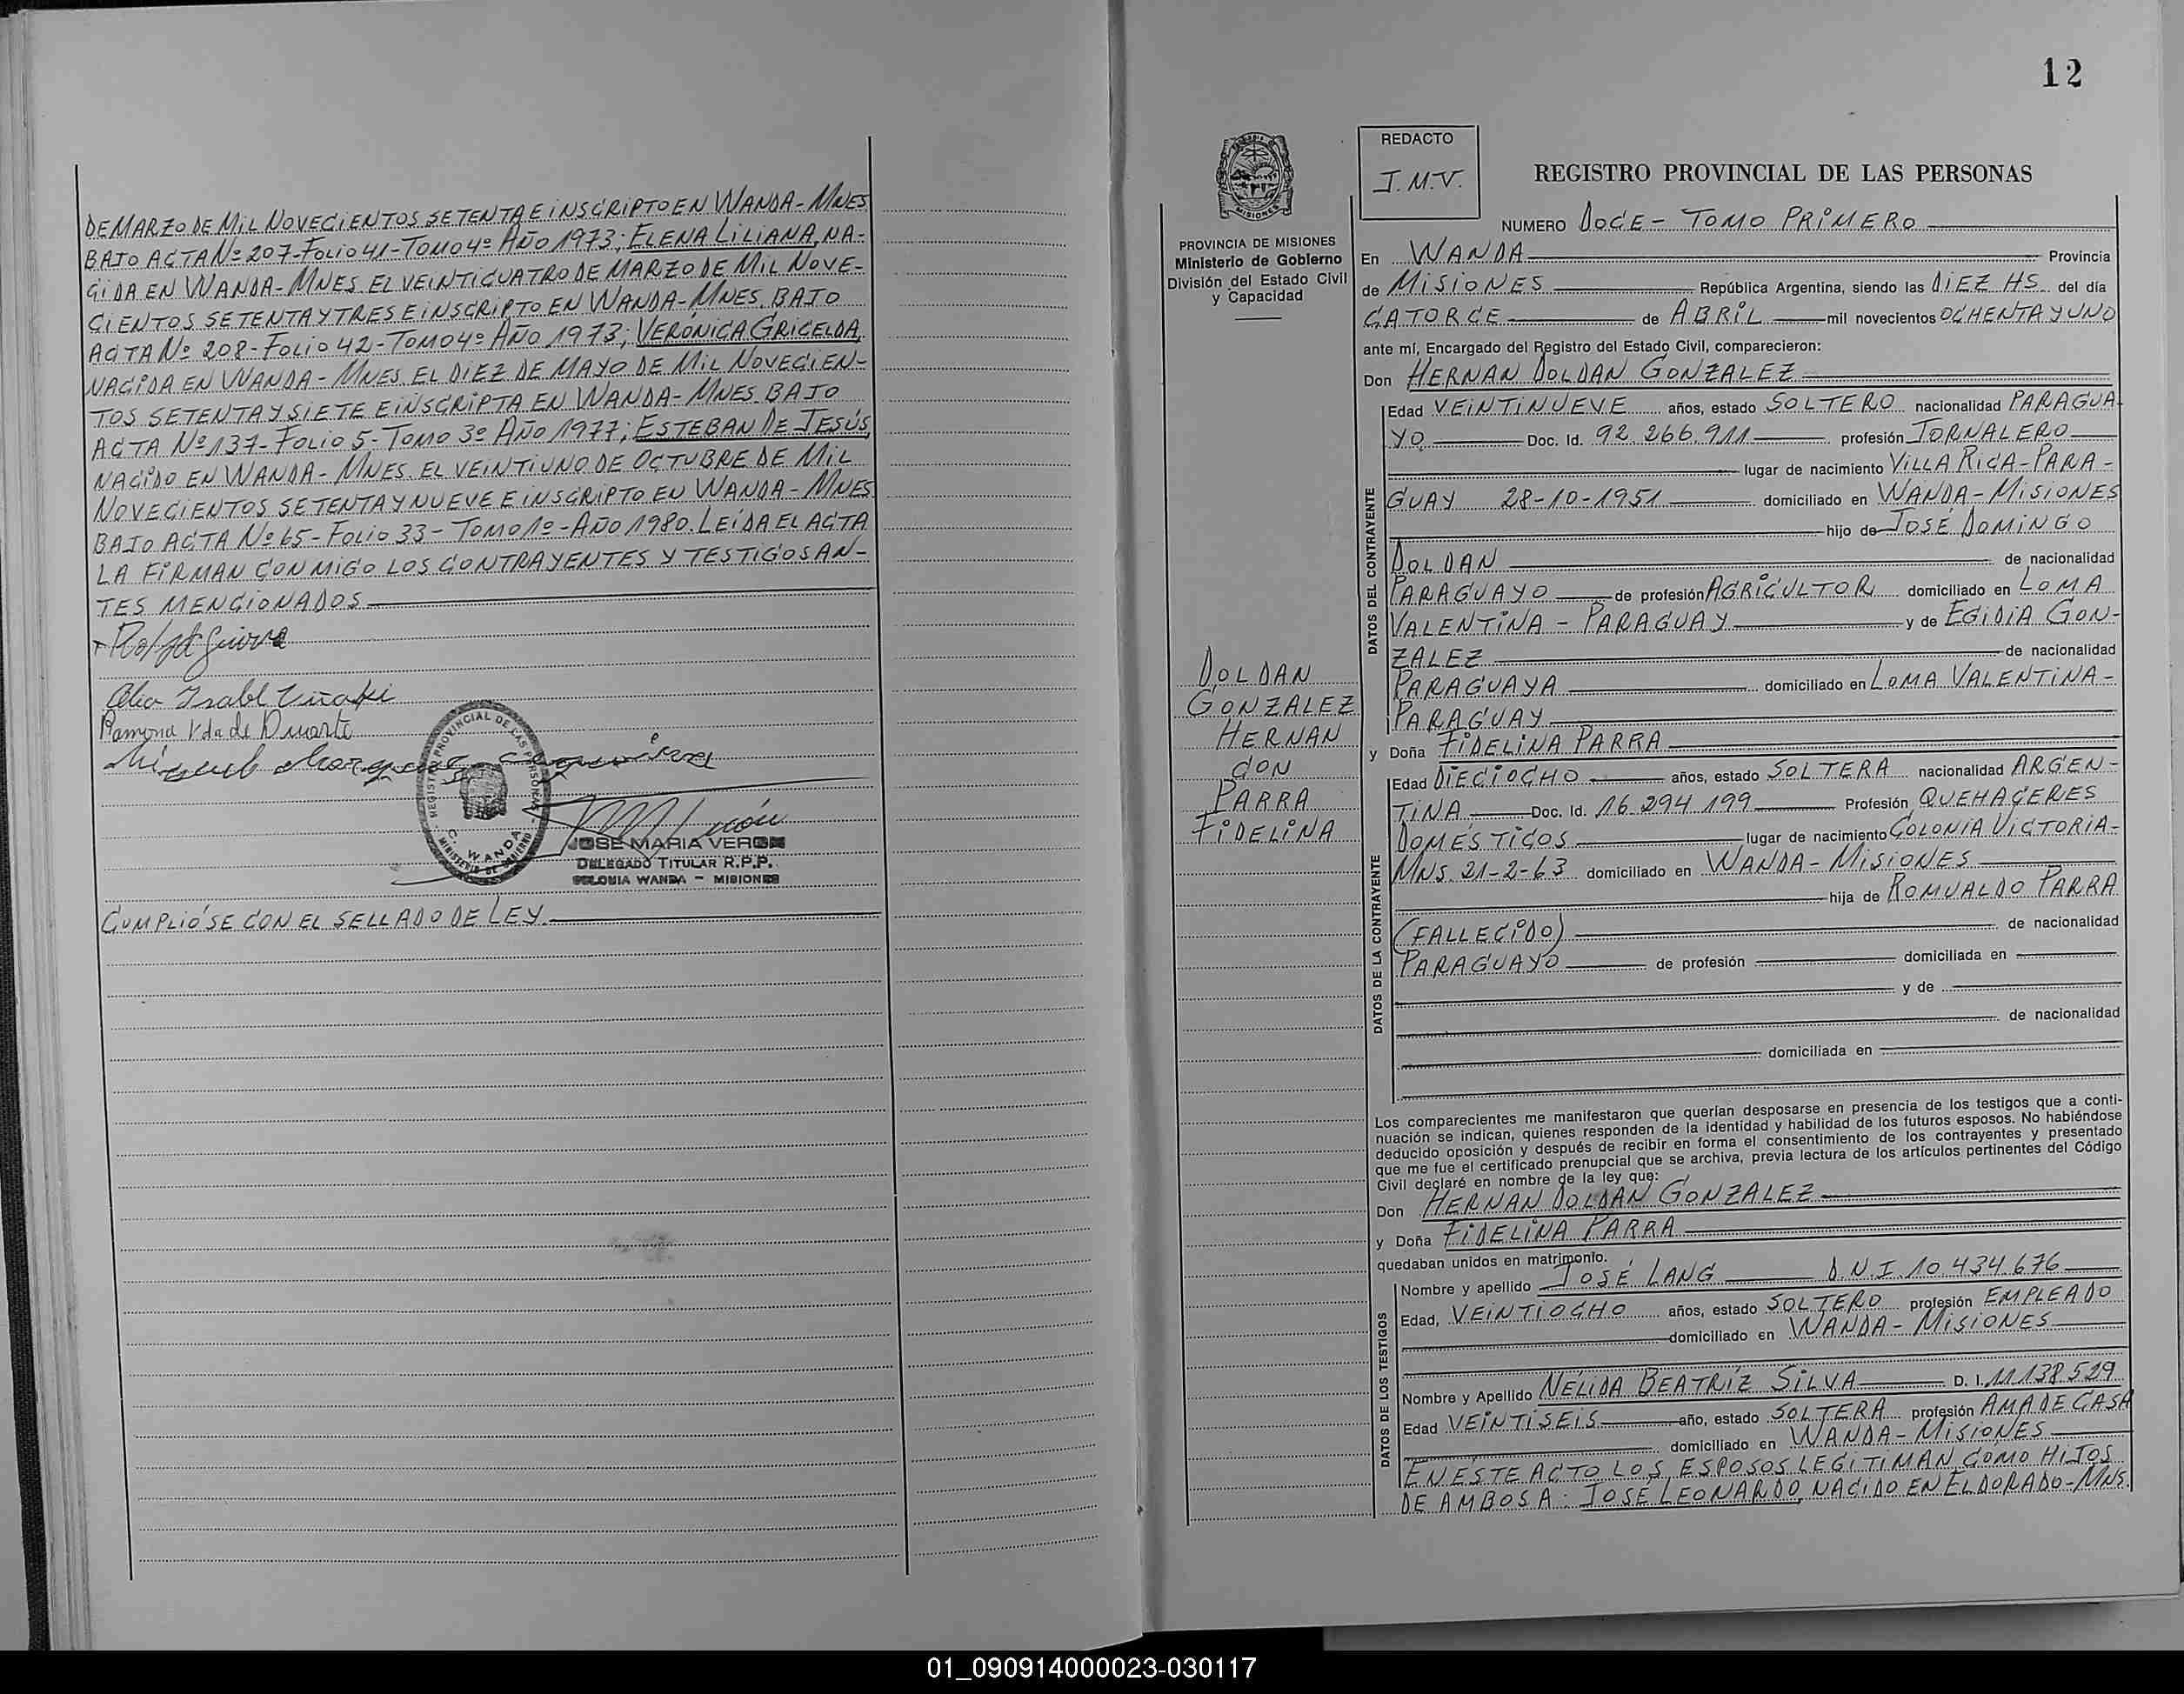 DE MARZO DE MIL NOVECIENTOS SETENTA E INSCRIPTO EN WANDA - MNES
BAJO ACTA Nº 207 - FOLIO 41 - TOMO 4º AÑO 1973; ELENA LILIANA, NA-
CIDA EN WANDA - MNES. EL VEINTICUATRO DE MARZO DE MIL NOVE-
CIENTOS SETENTA Y TRES E INSCRIPTO EN WANDA - MNES. BAJO
ACTA Nº 208 - FOLIO 42 - TOMO 4º AÑO 1973; VERÓNICA GRICELDA,
NACIDA EN WANDA - MNES. EL DIEZ DE MAYO DE MIL NOVECIEN-
TOS SETENTA Y SIETE E INSCRIPTA EN WANDA - MNES. BAJO
ACTA Nº 137 - FOLIO 5 - TOMO 3º AÑO 1977; ESTEBAN DE JESÚS,
NACIDO EN WANDA - MNES. EL VEINTIUNO DE OCTUBRE DE MIL
NOVECIENTOS SETENTA Y NUEVE E INSCRIPTO EN WANDA - MNES
BAJO ACTA Nº 65 - FOLIO 33 - TOMO 1º - AÑO 1980. LEÍDA EL ACTA
LA FIRMAN CONMIGO LOS CONTRAYENTES Y TESTIGOS AN-
TES MENCIONADOS
Ramona Vda de Duarte
REGISTRO PROVINCIAL DE LAS PERSONAS
C. WANDA
MINISTERIO DE GOBIERNO
JOSE MARIA VERON
DELEGADO TITULAR R.P.P.
COLONIA WANDA - MISIONES
CUMPLIÓSE CON EL SELLADO DE LEY.
12
PROVINCIA DE MISIONES
Ministerio de Gobierno
División del Estado Civil
y Capacidad
REDACTO
J.M.V.
REGISTRO PROVINCIAL DE LAS PERSONAS
NUMERO DOCE - TOMO PRIMERO
En WANDA Provincia
de MISIONES República Argentina, siendo las DIEZ HS. del día
CATORCE de ABRIL mil novecientos OCHENTA Y UNO
ante mí, Encargado del Registro del Estado Civil, comparecieron:
Don HERNAN DOLDAN GONZALEZ
DATOS DEL CONTRAYENTE
Edad VEINTINUEVE años, estado SOLTERO nacionalidad PARAGUA-
YO Doc. Id. 92.266.911 profesión JORNALERO
lugar de nacimiento VILLA RICA - PARA-
GUAY 28-10-1951 domiciliado en WANDA - MISIONES
hijo de JOSÉ DOMINGO
DOLDAN de nacionalidad
PARAGUAYO de profesión AGRICULTOR domiciliado en LOMA
VALENTINA - PARAGUAY y de EGIDIA GON-
ZALEZ de nacionalidad
PARAGUAYA domiciliado en LOMA VALENTINA -
PARAGUAY
DOLDAN
GONZALEZ
HERNAN
CON
PARRA
FIDELINA
y Doña FIDELINA PARRA
DATOS DE LA CONTRAYENTE
Edad DIECIOCHO años, estado SOLTERA nacionalidad ARGEN-
TINA Doc. Id. 16.294.199 Profesión QUEHACERES
DOMESTICOS lugar de nacimiento COLONIA VICTORIA -
MNS. 21-2-63 domiciliado en WANDA - MISIONES
hija de ROMUALDO PARRA
(FALLECIDO) de nacionalidad
PARAGUAYO de profesión domiciliada en
y de
de nacionalidad
domiciliada en
Los comparecientes me manifestaron que querían desposarse en presencia de los testigos que a conti-
nuación se indican, quienes responden de la identidad y habilidad de los futuros esposos. No habiéndose
deducido oposición y después de recibir en forma el consentimiento de los contrayentes y presentado
que me fue el certificado prenupcial que se archiva, previa lectura de los artículos pertinentes del Código
Civil declaré en nombre de la ley que:
Don HERNAN DOLDAN GONZALEZ
y Doña FIDELINA PARRA
quedaban unidos en matrimonio.
DATOS DE LOS TESTIGOS
Nombre y apellido JOSÉ LANG D.N.I. 10.434.676
Edad, VEINTIOCHO años, estado SOLTERO profesión EMPLEADO
domiciliado en WANDA - MISIONES
Nombre y Apellido NELIDA BEATRIZ SILVA D. I. 11.138.529
Edad VEINTISEIS año, estado SOLTERA profesión AMA DE CASA
domiciliado en WANDA - MISIONES
EN ESTE ACTO LOS ESPOSOS LEGITIMAN COMO HIJOS
DE AMBOS A: JOSÉ LEONARDO, NACIDO EN ELDORADO - MNS.
01_090914000023-030117